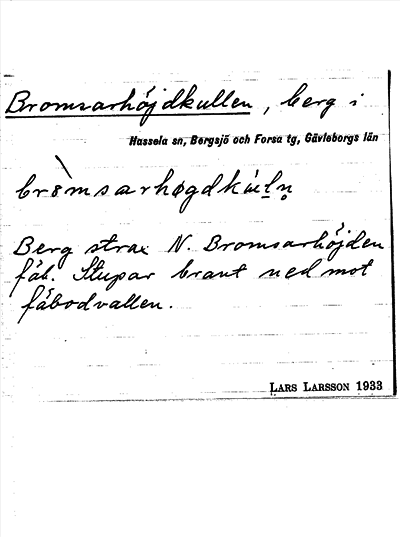 Bromsarhöjdkullen, berg i
Hassela sn, Bergsjö och Forsa tg, Gävleborgs län
Berg strax N. Bromsarhöjden
fäb. Stupar brant ned mot
fäbodvallen.
LARS LARSSON 1933